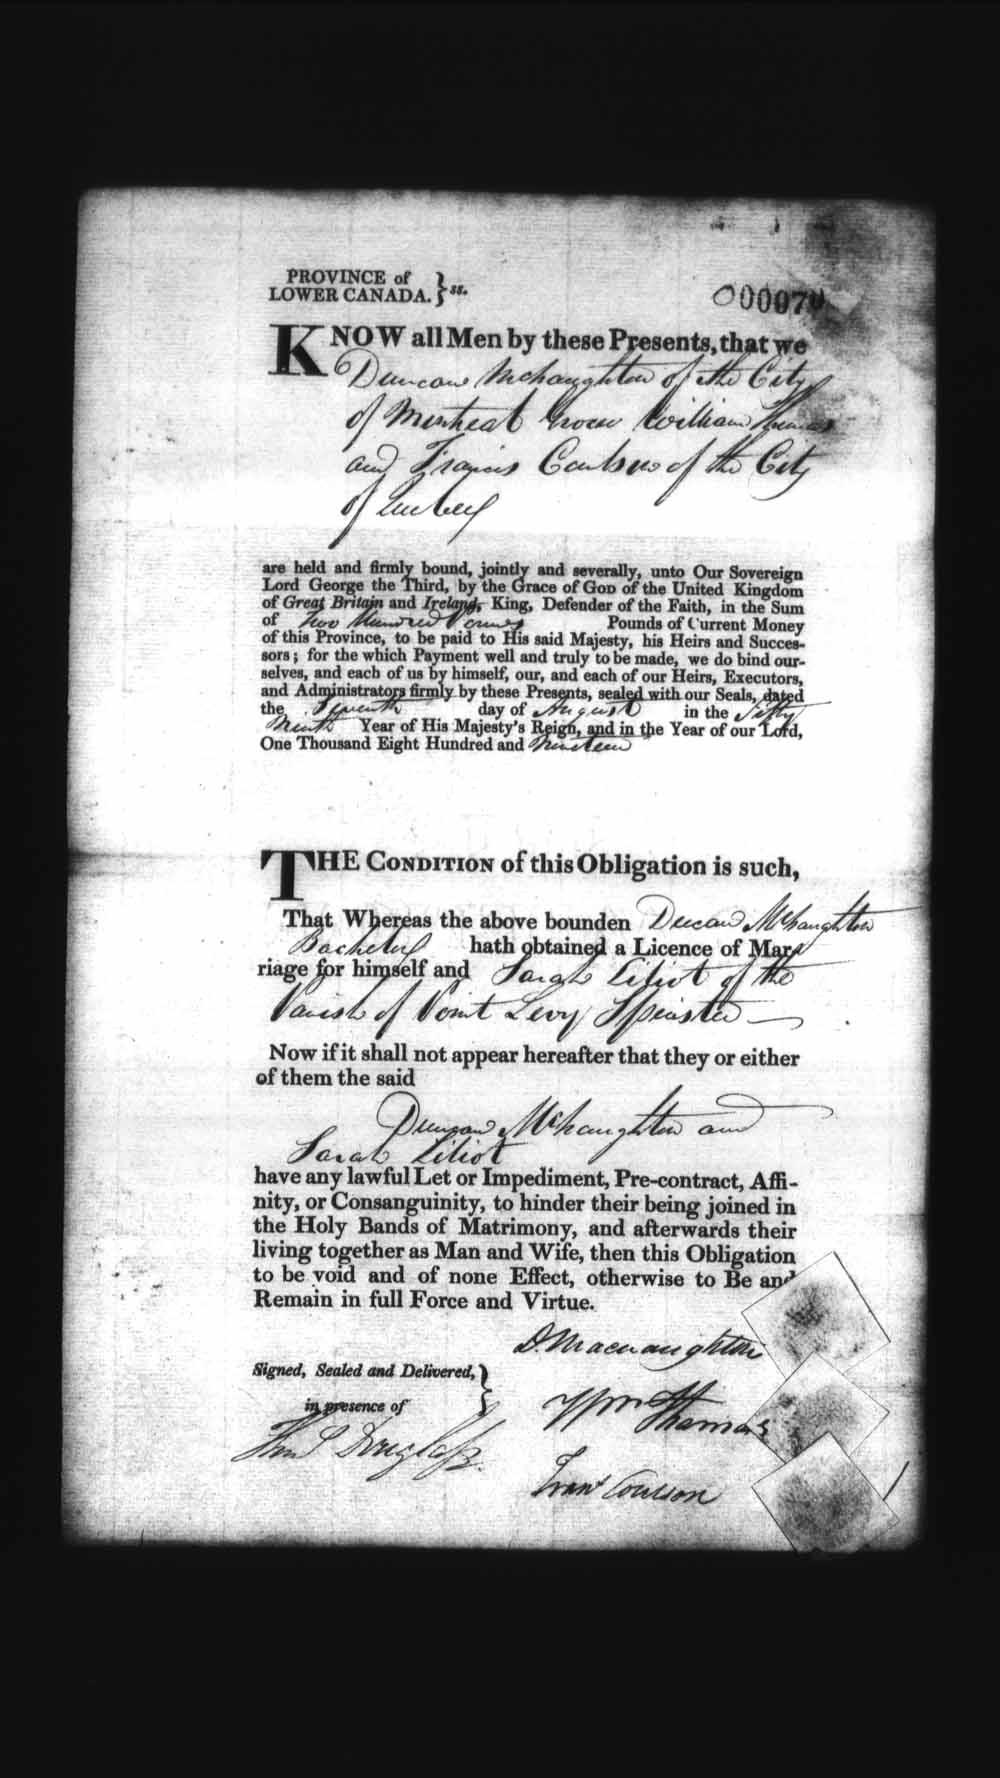 PROVINCE of
LOWER CANADA. } ss.
KNOW all Men by these Presents, that we
Duncan McNaughton of the City
of Montreal Grocer William Thomas
and Francis Coulson of the City
of Quebec
are held and firmly bound, jointly and severally, unto Our Sovereign
Lord George the Third, by the Grace of God of the United Kingdom
of Great Britain and Ireland, King, Defender of the Faith, in the Sum
of Two Hundred Pounds Pounds of Current Money
of this Province, to be paid to His said Majesty, his Heirs and Succes-
sors; for the which Payment well and truly to be made, we do bind our-
selves, and each of us by himself, our, and each of our Heirs, Executors,
and Administrators firmly by these Presents, sealed with our Seals, dated
the day of August in the Fifty
Ninth Year of His Majesty's Reign, and in the Year of our Lord,
One Thousand Eight Hundred and Nineteen
THE CONDITION of this Obligation is such,
That Whereas the above bounden Duncan McNaughton
Bachelor hath obtained a Licence of Mar-
riage for himself and Sarah Eliot of the
Parish of Point Levy Spinster —
Now if it shall not appear hereafter that they or either
of them the said
Duncan McNaughton and
Sarah Eliot
have any lawful Let or Impediment, Pre-contract, Affi-
nity, or Consanguinity, to hinder their being joined in
the Holy Bands of Matrimony, and afterwards their
living together as Man and Wife, then this Obligation
to be void and of none Effect, otherwise to Be and
Remain in full Force and Virtue.
D. Macnaughton
Signed, Sealed and Delivered, }
in presence of
Wm Thomas
Douglass
Frans Coulson